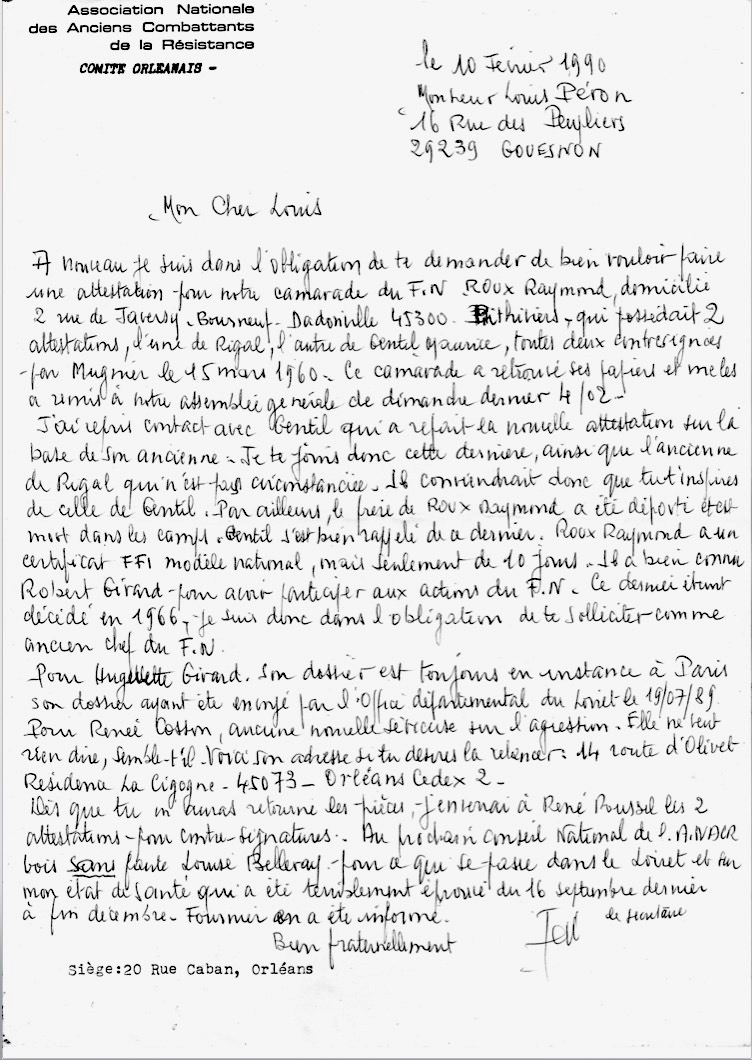 Association Nationale
des Anciens Combattants
de la Résistance
COMITE ORLEANAIS -
le 10 Février 1990
Monsieur Louis Péron
16 Rue des Peupliers
29239 GOUESNON
Mon Cher Louis
A nouveau je suis dans l'obligation de te demander de bien vouloir faire
une attestation pour notre camarade du F.N ROUX Raymond, domicilié
2 rue de Javersy. Bourneuf. Dadonville 45300 Pithiviers, qui possédait 2
attestations, l'une de Rigal, l'autre de Gentil Maurice, toutes deux contresignées
par Mugnier le 15 mars 1960. Ce camarade a retrouvé ses papiers et me les
a remis à notre assemblée générale de dimanche dernier 4/02 -
J'ai repris contact avec Gentil qui a refait la nouvelle attestation sur la
base de son ancienne. Je te joins donc cette dernière, ainsi que l'ancienne
de Rigal qui n'est pas circonstanciée. Il conviendrait donc que tu t'inspires
de celle de Gentil. Par ailleurs, le frère de ROUX Raymond a été déporté et est
mort dans les camps. Gentil s'est bien rappelé de ce dernier. ROUX Raymond a un
certificat FFI modèle national, mais seulement de 10 jours. Il a bien connu
Robert Girard pour avoir participer aux actions du F.N. Ce dernier étant
décédé en 1966, je suis donc dans l'obligation de te solliciter comme
ancien chef du F.N
Pour Huguette Girard. Son dossier est toujours en instance à Paris
son dossier ayant été envoyé par l'Office départemental du Loiret le 19/07/89
Pour Renée Cosson, aucune nouvelle sérieuse sur l'agression. Elle ne veut
rien dire, semble-t'il. Voici son adresse si tu désires la relancer : 14 route d'Olivet
Résidence La Cigogne - 45073 - Orléans Cedex 2 -
Dès que tu m'auras retourné les pièces, j'enverrai à René Roussel les 2
attestations pour contre-signatures. Au prochain Conseil National de l'ANACR
vois sans faute Louise Belleray pour ce que se passe dans le Loiret et sur
mon état de santé qui a été terriblement éprouvé du 16 septembre dernier
à fin décembre. Fournier en a été informé.
Bien fraternellement
le secrétaire
Siège:20 Rue Caban, Orléans